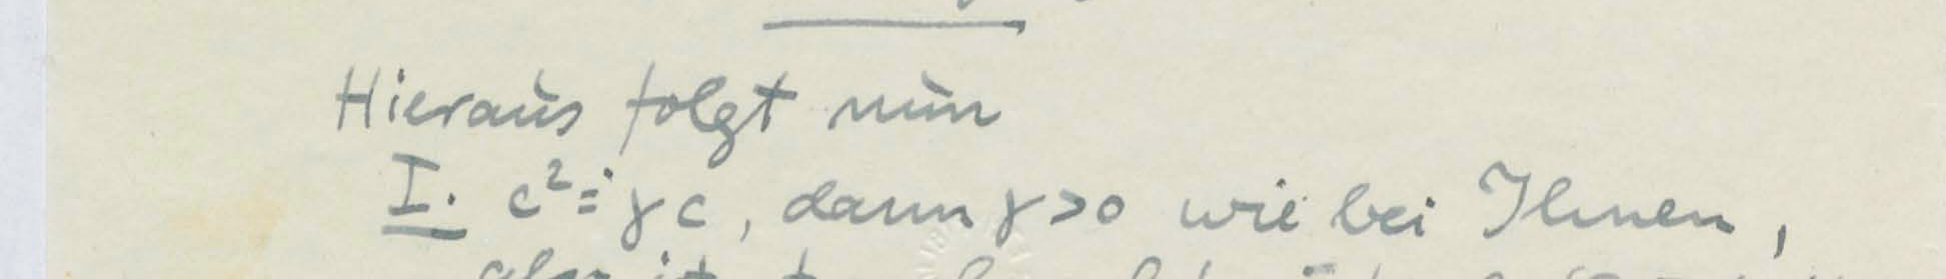 Hieraus folgt nun
I. c² = γc, dann γ>0 wie bei Ihnen,